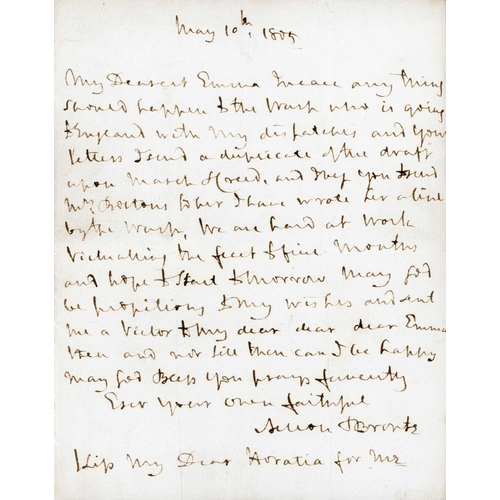 May 10th, 1805
My Dearest Emma Incase any thing
should happen to the Wasp who is going
to England with My dispatches and your
letters I send a duplicate of the draft
upon Marsh & Creed, and I beg you to send
Mrs. Boltons to her I have wrote her a line
by the Wasp, We are hard at work
Victualling the fleet to five Months
and hope to Start tomorrow May God
be propitious to My wishes and send
me a Victor to My dear dear dear Emma
then and not till then can I be happy
May God Bless You prays fervently
Ever Your Own faithful
Nelson & Bronte
Kiss My Dear Horatia for Me